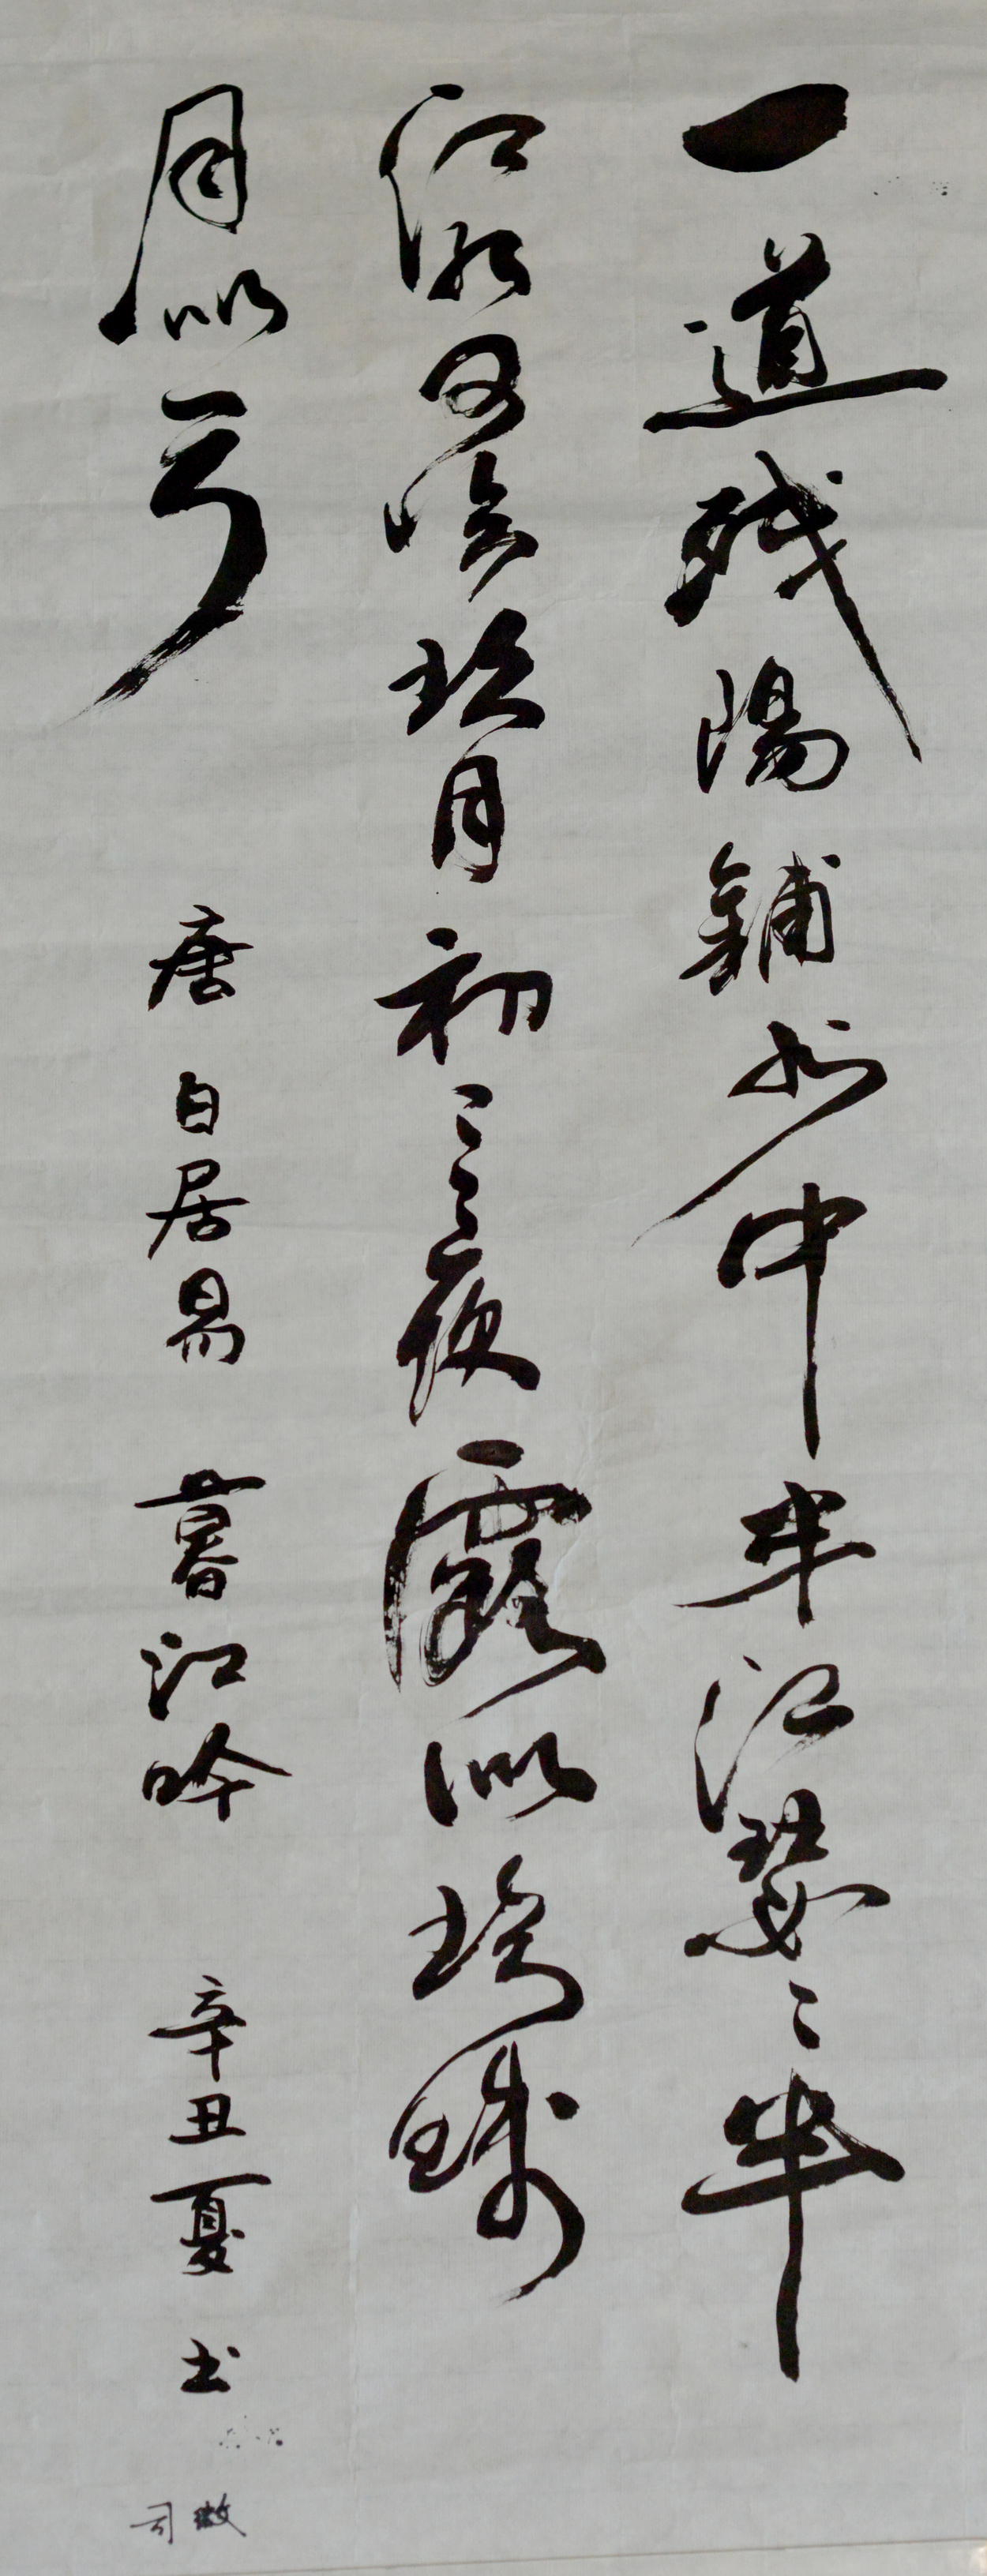 一道残陽鋪水中半江瑟〻半
江紅可憐玖月初三夜露似珍珠
月似弓 唐 白居易 暮江吟 辛丑夏 书